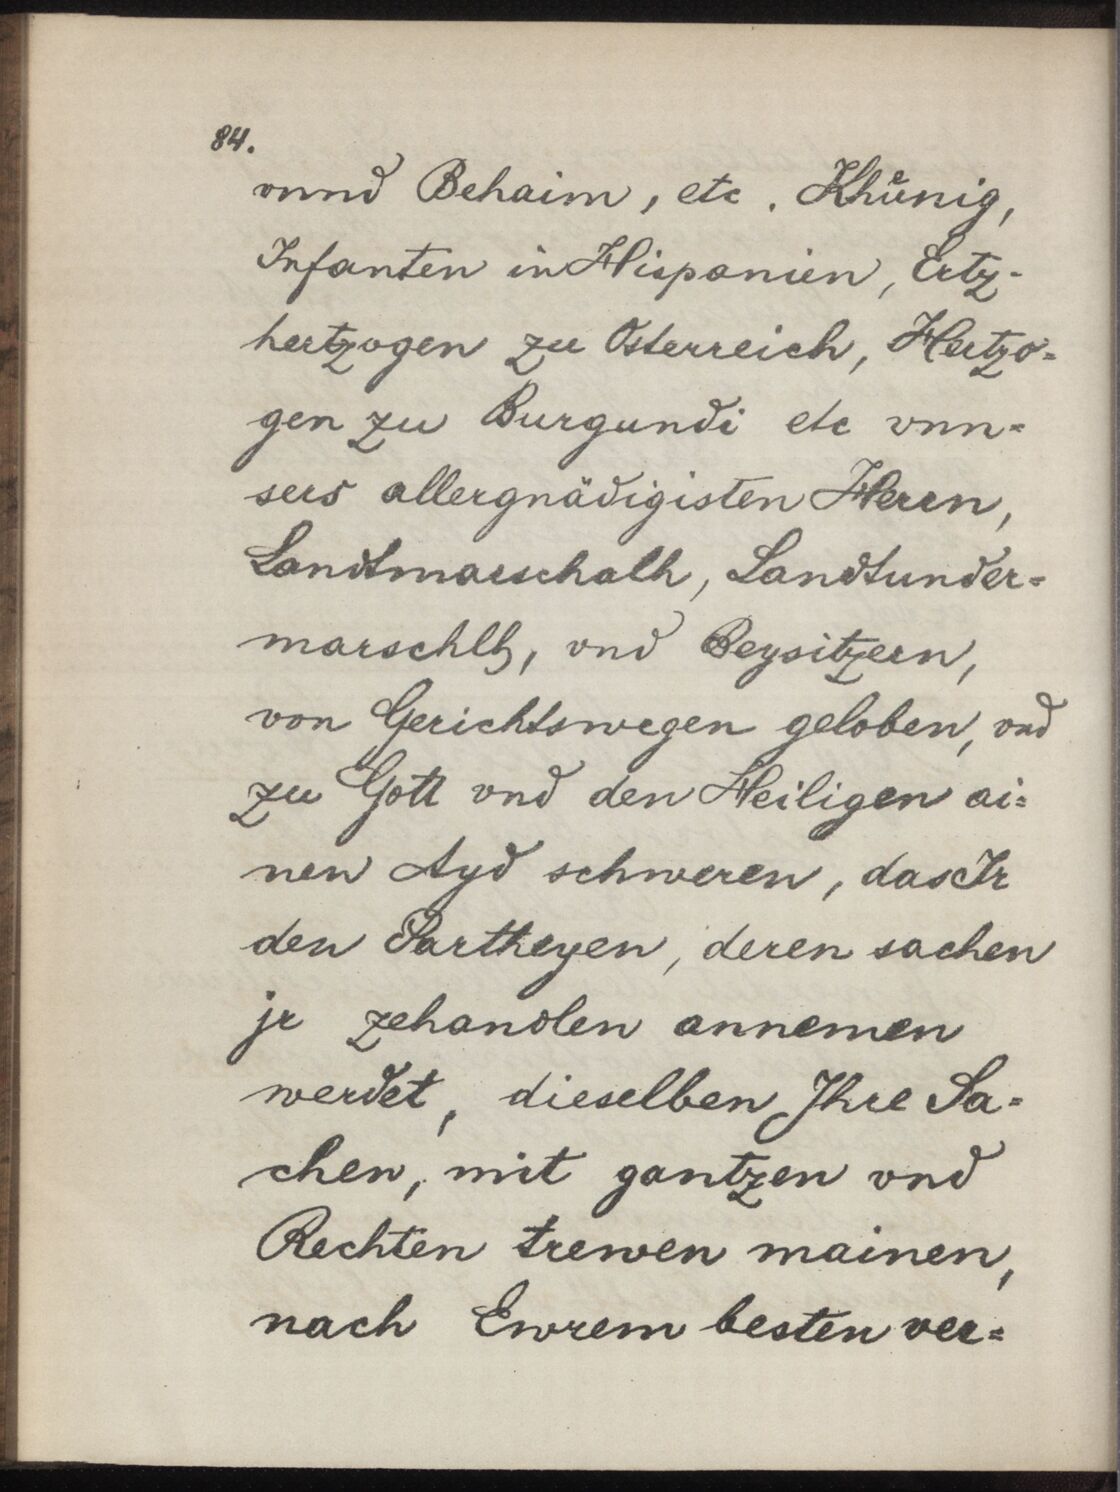 84.
vnnd Behaim, etc. Khůnig,
Infanten in Hispanien, Ertz-
hertzogen zu Osterreich, Hertzo-
gen zu Burgundi etc vnn-
sers allergnädigisten Herrn,
Landtmarschalh, Landtunder-
marschlh, vnd Beysitzern,
von Gerichtswegen geloben, vnd
zu Gott vnd den Heiligen ai-
nen Ayd schweren, das Ir
den Partheyen, deren sachen
jr zehandlen annemen
werdet, dieselben Ihre Sa-
chen, mit gantzen vnd
Rechten trewen mainen,
nach Ewrem besten ver-